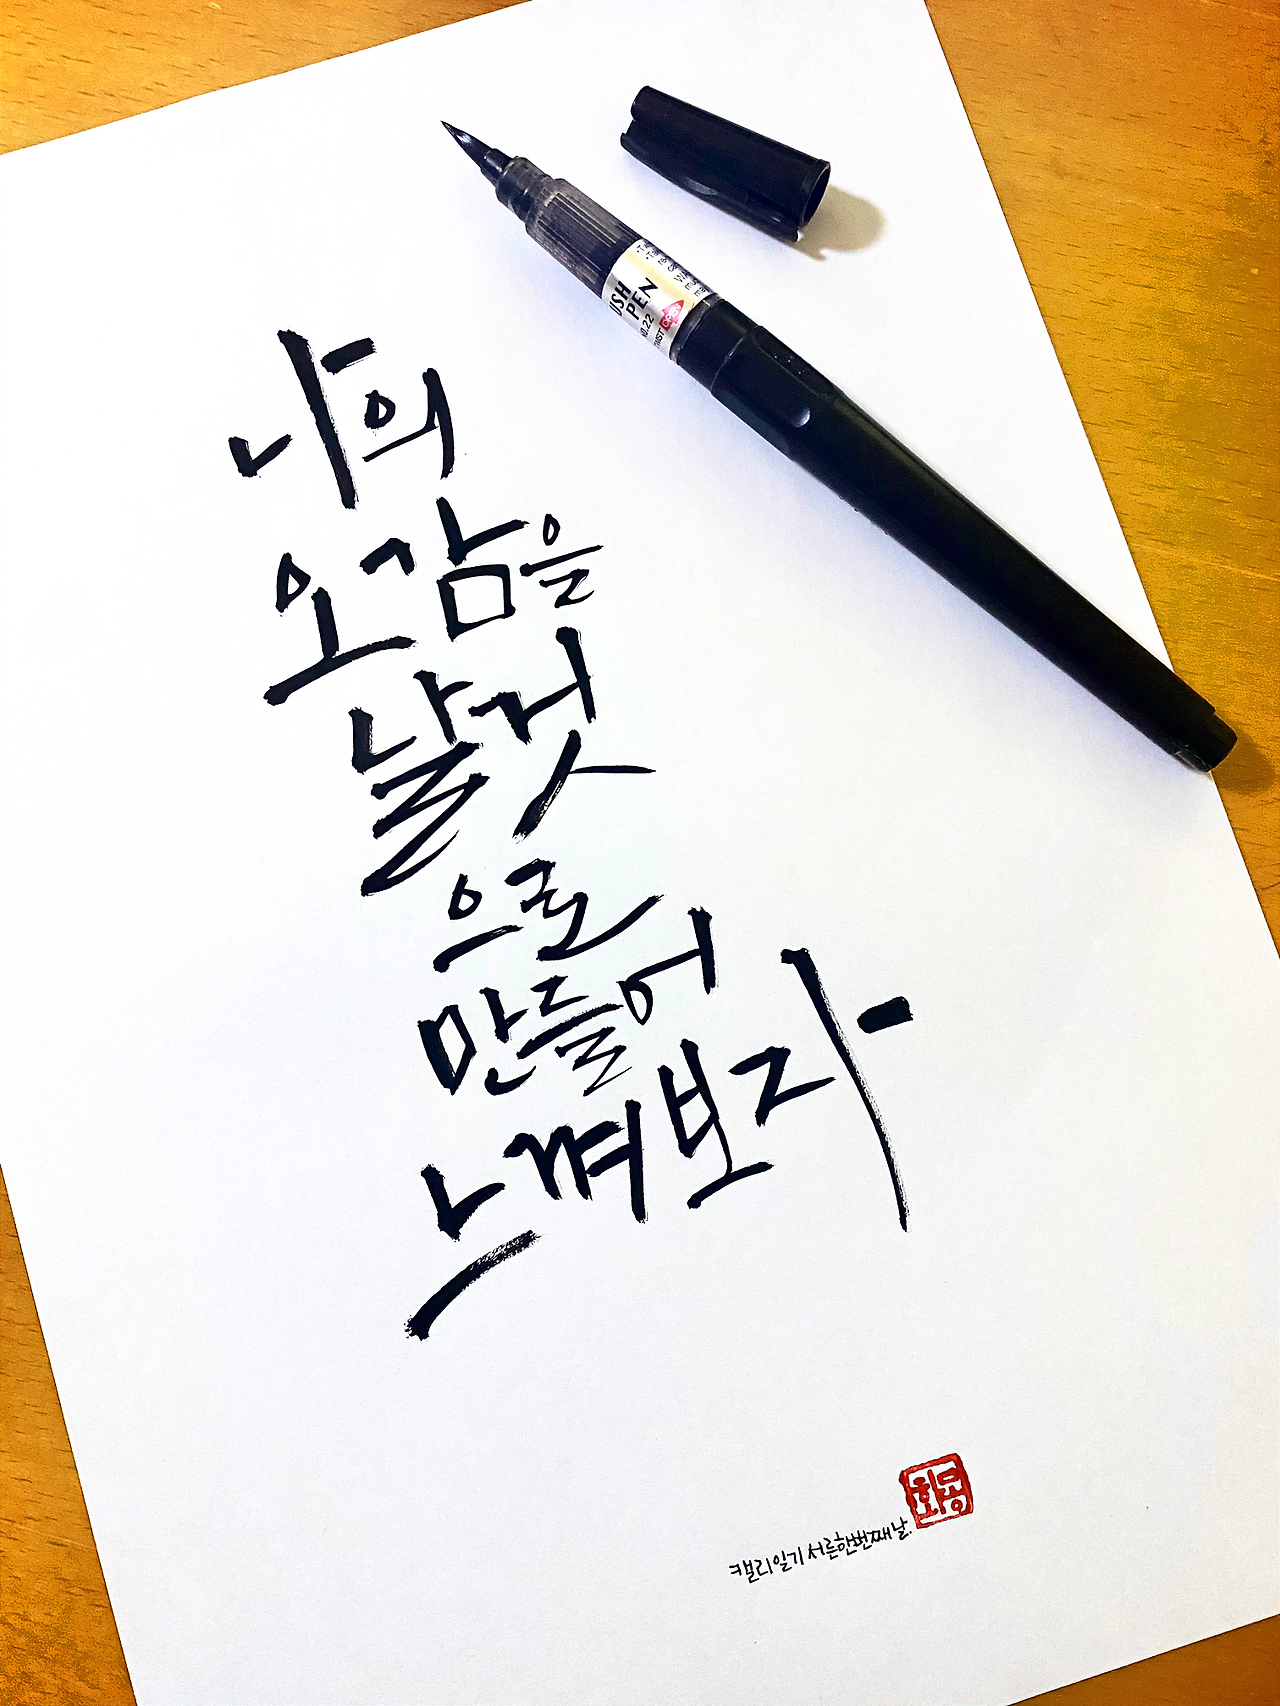 USH
PEN
나의
오감을
날것
으로
만들어
느껴보자
화몽
캘리일기 서른한번째날.